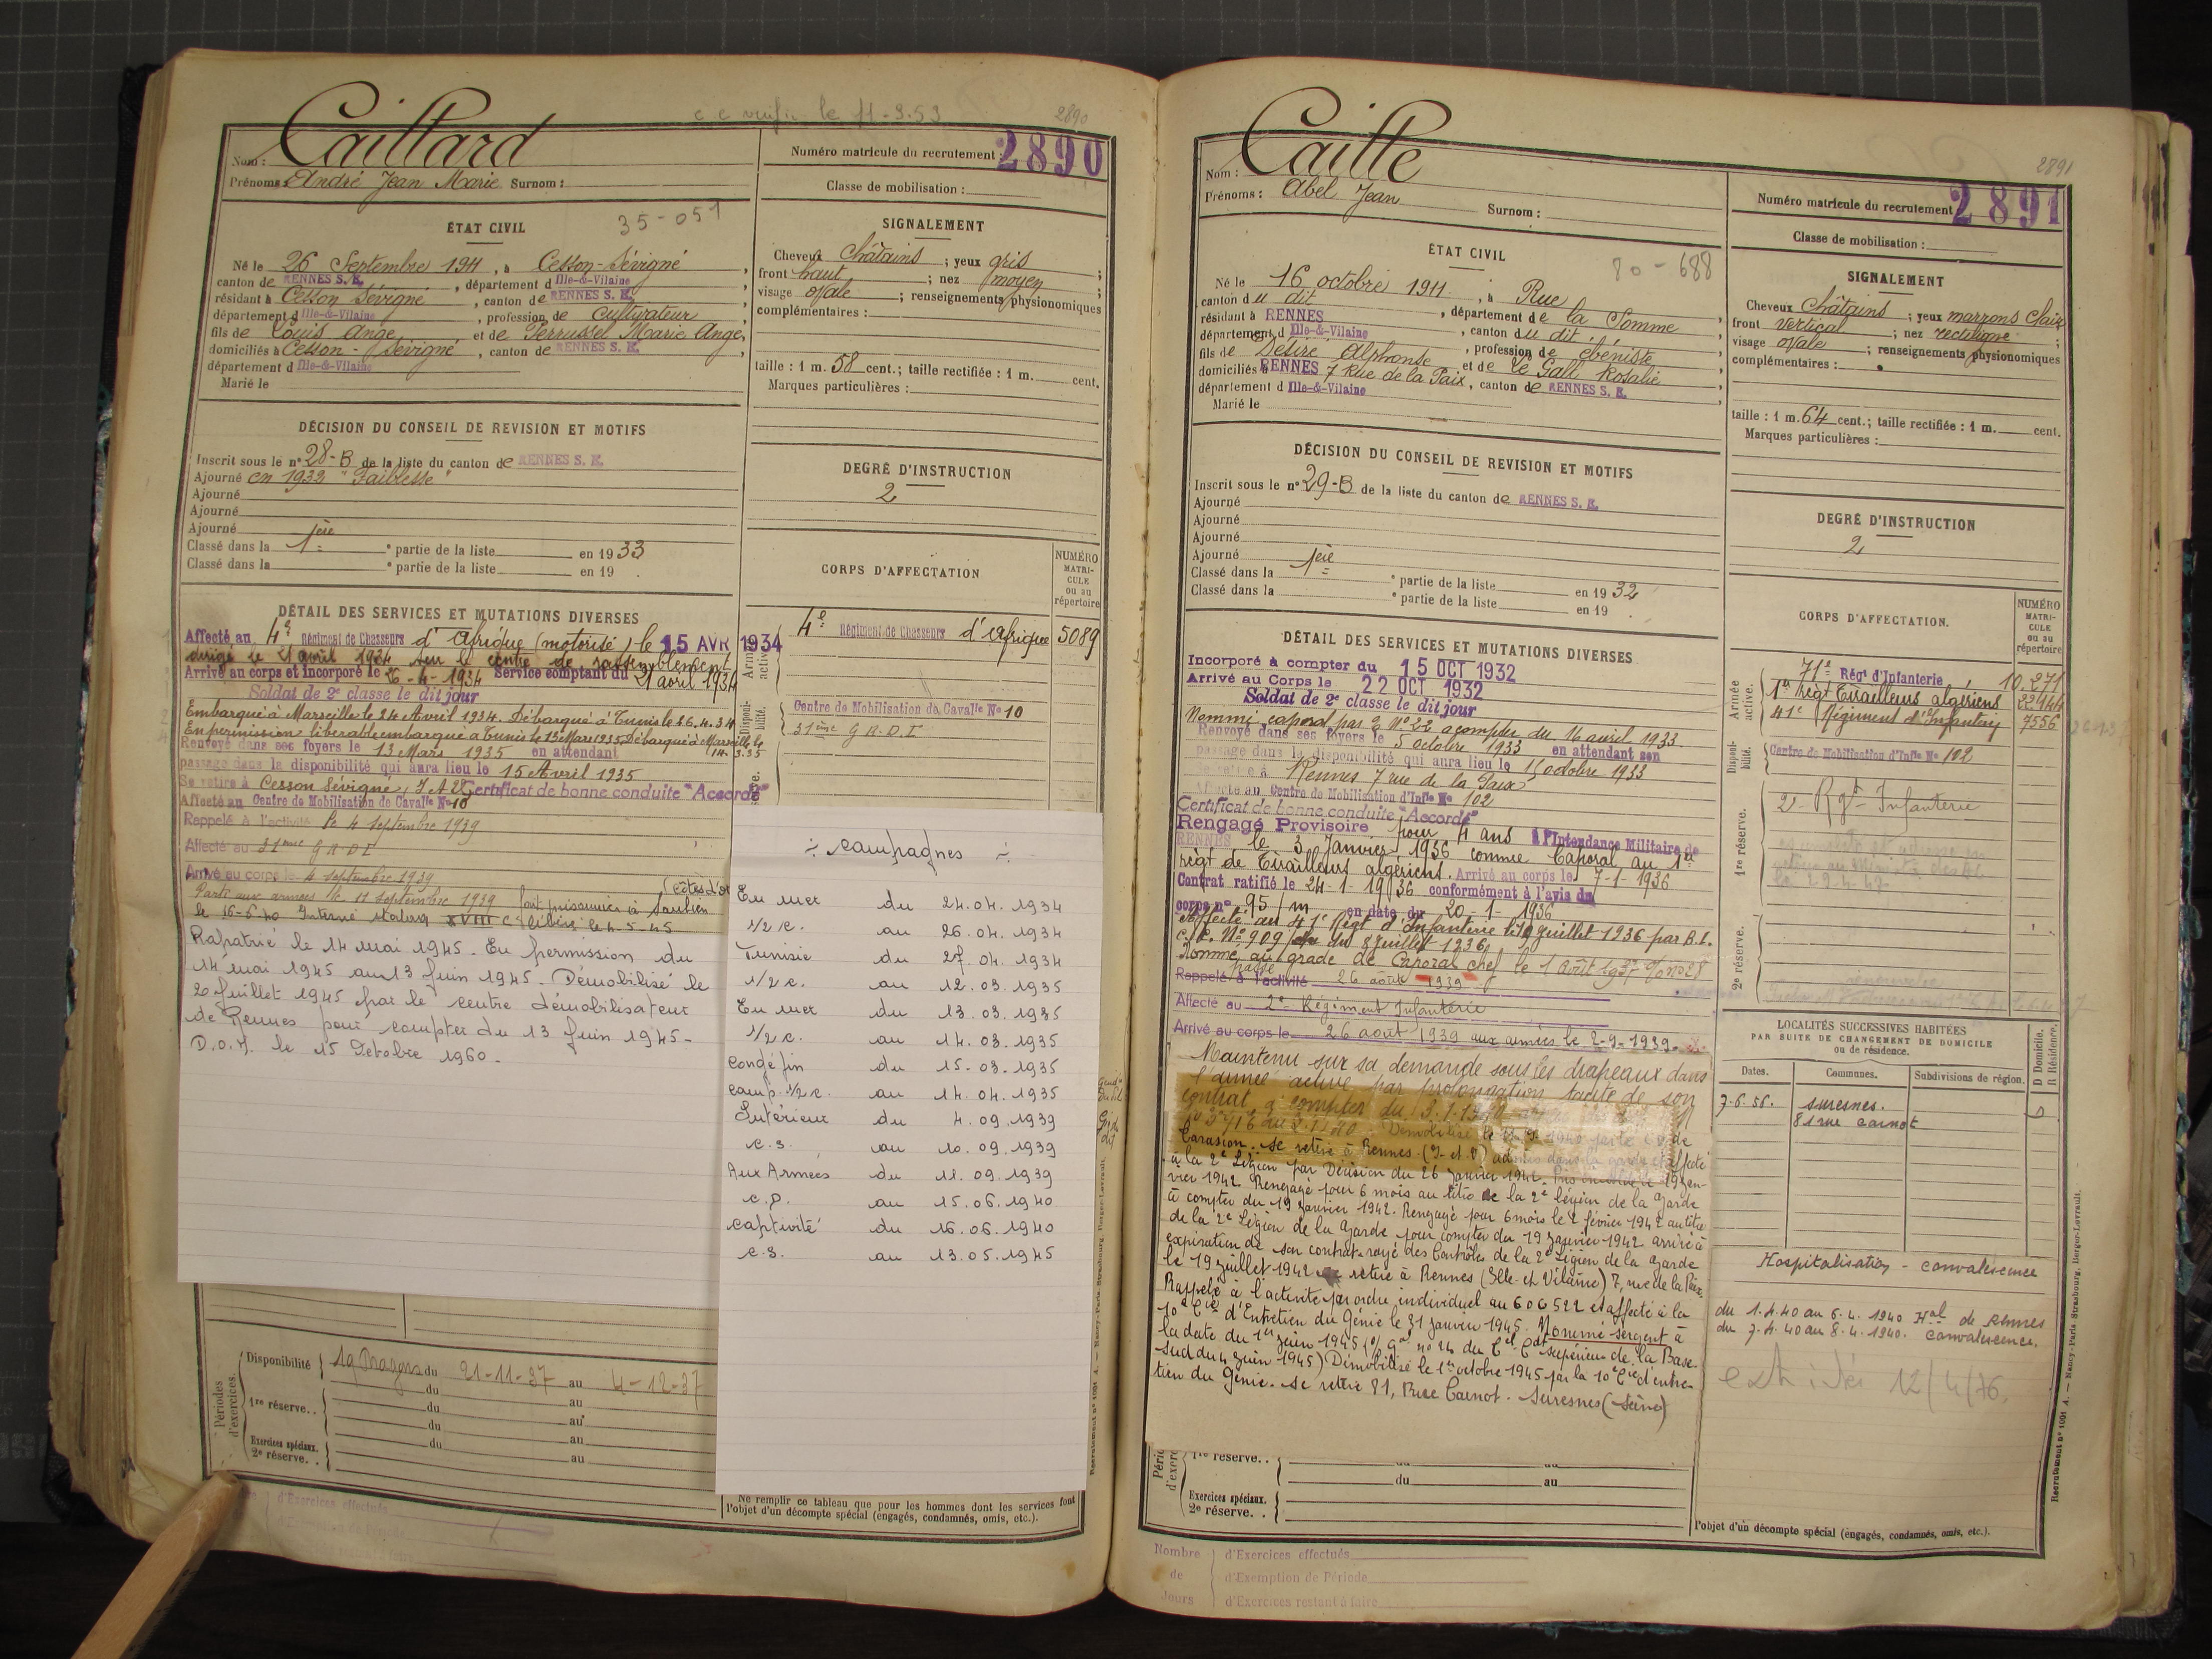 c c le 11-3-53
2890
Nom : Caillard
Prénoms : André Jean Marie Surnom :
Numéro matricule du recrutement : 2890
Classe de mobilisation :
ÉTAT CIVIL
35-051
Né le 26 Septembre 1911, à Cesson-Sévigné,
canton de RENNES S. E., département d Ille-&-Vilaine,
résidant à Cesson Sévigné, canton de RENNES S. E.,
département d Ille-&-Vilaine, profession de Cultivateur,
fils de Louis Ange et de Perrussel Marie Ange,
domiciliés à Cesson-Sévigné, canton de RENNES S. E.,
département d Ille-&-Vilaine
Marié le
SIGNALEMENT
Cheveux Châtains ; yeux gris ;
front haut ; nez moyen ;
visage ovale ; renseignements physionomiques
complémentaires :
taille : 1 m. 58 cent.; taille rectifiée : 1 m. cent.
Marques particulières :
DÉCISION DU CONSEIL DE REVISION ET MOTIFS
Inscrit sous le n° 28-B de la liste du canton de RENNES S. E.
Ajourné en 1932 "Faiblesse"
Ajourné
Ajourné
Ajourné
Classé dans la 1ère partie de la liste en 1933
Classé dans la e partie de la liste en 19 .
DEGRÉ D'INSTRUCTION
2
CORPS D'AFFECTATION
NUMÉRO MATRI-CULE ou au répertoire
4e Régiment de Chasseurs d'Afrique 5089
Centre de Mobilisation de Cavalle No 10
31ème G.R.D.I.
DÉTAIL DES SERVICES ET MUTATIONS DIVERSES
Affecté au 4e Régiment de Chasseurs d'Afrique (motorisé) le 15 AVR 1934
dirigé le 21 avril 1934 sur le centre de rassemblement
Arrivé au corps et incorporé le 26-4-1934 Service comptant du 21 avril 1934
Soldat de 2e classe le dit jour
Embarqué à Marseille le 24 Avril 1934. Débarqué à Tunis le 26.4.34
En permission libérable embarqué à Tunis le 13 Mars 1935 Débarqué à Marseille le 14.3.35
Renvoyé dans ses foyers le 13 Mars 1935 en attendant
passage dans la disponibilité qui aura lieu le 15 Avril 1935
Se retire à Cesson Sévigné, I & V Certificat de bonne conduite "Accordé"
Affecté au Centre de Mobilisation de Cavalle No 10
Rappelé à l'activité le 4 septembre 1939
Affecté au 31ème G R D I
Arrivé au corps le 4 septembre 1939
Parti aux armées le 11 septembre 1939 fait prisonnier à Saulieu (Côtes d'or
le 16-6-40 Interné stalag XVIII C libéré le 4-5-45
Rapatrié le 14 mai 1945. En permission du
14 mai 1945 au 13 Juin 1945. Démobilisé le
20 Juillet 1945 par le centre démobilisateur
de Rennes pour compter du 13 Juin 1945-
D.O.M. le 15 Octobre 1960.
÷ Campagnes ÷
En mer du 24.04.1934
1/2 c. au 26.04.1934
Tunisie du 27.04.1934
1/2 c. au 12.03.1935
En mer du 13.03.1935
1/2 c. au 14.03.1935
Congé fin du 15.03.1935
camp. 1/2 c. au 14.04.1935
Intérieur du 4.09.1939
C.S. au 10.09.1939
Aux Armées du 11.09.1939
C.D. au 15.06.1940
Captivité du 16.06.1940
C.S. au 13.05.1945
Périodes d'exercices.
Disponibilité 19 Dragons du 21-11-37 au 4-12-37
du au
1re réserve. . du au
du au
Exercices spéciaux. du au
2e réserve. . au
Ne remplir ce tableau que pour les hommes dont les services font
l'objet d'un décompte spécial (engagés, condamnés, omis, etc.).
d'Exercices effectués
2891
Nom : Caille
Prénoms : Abel Jean Surnom :
Numéro matricule du recrutement 2891
Classe de mobilisation :
ÉTAT CIVIL
80-688
Né le 16 octobre 1911, à Rue,
canton du dit, département de la Somme,
résidant à RENNES, canton du dit,
département d Ille-&-Vilaine, profession de ébéniste,
fils de Désiré Alphonse et de Le Gall Rosalie
domiciliés à RENNES 7 Rue de la Paix, canton de RENNES S. E.,
département d Ille-&-Vilaine
Marié le
SIGNALEMENT
Cheveux Châtains ; yeux marrons clair
front vertical ; nez rectiligne ;
visage ovale ; renseignements physionomiques
complémentaires :
taille : 1 m. 64 cent.; taille rectifiée : 1 m. cent.
Marques particulières :
DÉCISION DU CONSEIL DE REVISION ET MOTIFS
Inscrit sous le n° 29-B de la liste du canton de RENNES S. E.
Ajourné
Ajourné
Ajourné
Ajourné
Classé dans la 1ère partie de la liste en 1932
Classé dans la e partie de la liste en 19 .
DEGRÉ D'INSTRUCTION
2
CORPS D'AFFECTATION.
NUMÉRO MATRI-CULE ou au répertoire
Armée active.
71e Régt d'Infanterie 10.271
1er régt Tirailleurs algériens 22946
41e Régiment d'Infanterie 7556
Disponi-bilité.
Centre de Mobilisation d'Infie No 102
1re réserve.
2e Rgt Infanterie
2e réserve.
DÉTAIL DES SERVICES ET MUTATIONS DIVERSES
Incorporé à compter du 15 OCT 1932
Arrivé au Corps le 22 OCT 1932
Soldat de 2e classe le dit jour
Nommé caporal par O N° 22 à compter du 16 avril 1933.
Renvoyé dans ses foyers le 5 octobre 1933 en attendant son
passage dans la disponibilité qui aura lieu le 15 octobre 1933
Se retire à Rennes 7 rue de la Paix
Affecté au Centre de Mobilisation d'Infie No 102
Certificat de bonne conduite "Accordé"
Rengagé Provisoire pour 4 ans à l'Intendance Militaire de
RENNES le 3 Janvier 1936 comme Caporal au 1er
régt de Tirailleurs algériens. Arrivé au corps le 7-1-1936
Contrat ratifié le 24-1-1936 conformément à l'avis du
corps n° 95/m en date du 20-1-1936
Affecté au 41e Régt d'Infanterie le 19 juillet 1936 par B.I.
C.R. N° 909 du 8 juillet 1936
Nommé au grade de Caporal chef le 1 Août 1937 O/no 28
Rappelé à l'activité passé 26 août 1939
Affecté au 2e Régiment Infanterie
Arrivé au corps le 26 août 1939 aux armées le 2-9-1939.
Maintenu sur sa demande sous les drapeaux dans
l'armée active par prolongation tacite de son
contrat à compter du 3-1-1940
Démobilisé le 1940 par le C.D. de
Tarascon. Se retire à Rennes (I. et V.) admis dans la garde et affecté
à la 2e Légion par Décision du 26 janvier 1942. 19 jan-
vier 1942 Rengagé pour 6 mois au titre de la 2e légion de la Garde
à compter du 19 janvier 1942. Rengagé pour 6 mois le 2 février 1942 au titre
de la 2e Légion de la Garde pour compter du 19 janvier 1942 arrivé à
expiration de son contrat rayé des Contrôles de la 2e Légion de la Garde
le 19 juillet 1942 se retire à Rennes (Ille et Vilaine) 7, rue de la Paix.
Rappelé à l'activité par ordre individuel au 606522 et affecté à la
10e Cie d'Entretien du Génie le 31 janvier 1945. Nommé sergent à
la date du 1er juin 1945 (O/G no 24 du Cel Cdt supérieur de la Base
Sud du 4 juin 1945) Démobilisé le 1er octobre 1945 par la 10e Cie d'entre-
tien du Génie. Se retire 81, Rue Carnot. Suresnes (Seine)
LOCALITÉS SUCCESSIVES HABITÉES
PAR SUITE DE CHANGEMENT DE DOMICILE
ou de résidence.
D Domicile. R Résidence.
Dates. Communes. Subdivisions de région.
7-6.56. Suresnes. D
81 rue Carnot
Hospitalisation - convalescence
du 1.4.40 au 6.4.1940 Hal de Rennes
du 7.4.40 au 8.4.1940. Convalescence.
12/4/76.
1re réserve. . du au
du au
Exercices spéciaux.
2e réserve. .
l'objet d'un décompte spécial (engagés, condamnés, omis, etc.).
Nombre de Jours
d'Exercices effectués
d'Exemption de Période
d'Exercices restant à faire
Recrutement n° 1001 A. — Nancy-Paris-Strasbourg, Berger-Levrault.